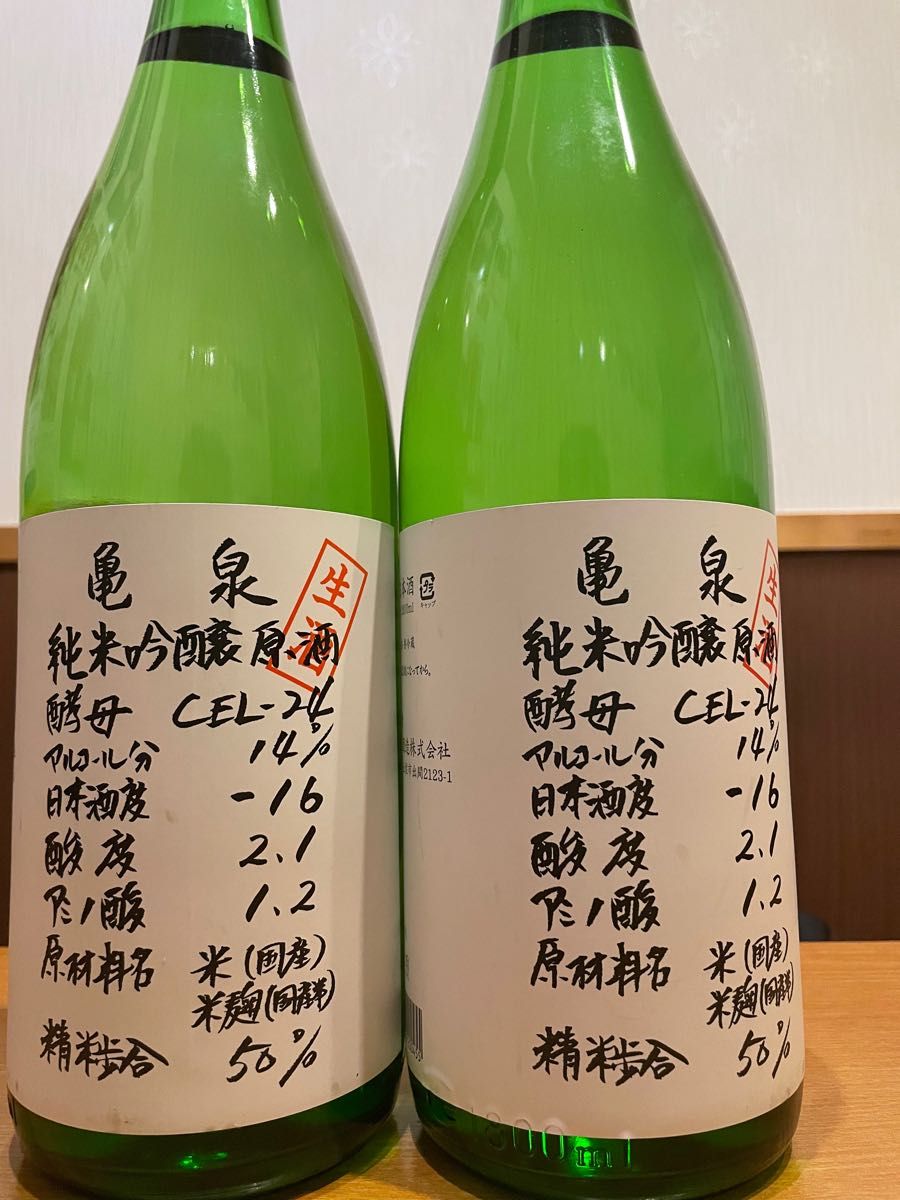 亀泉
生酒
純米吟醸原酒
酵母 CEL-24
アルコール分 14%
日本酒度 -16
酸度 2.1
アミノ酸 1.2
原材料名 米(国産)
米麹(国産米)
精米歩合 50%
本酒
キャップ
造株式会社
市出間2123-1
亀泉
生酒
純米吟醸原酒
酵母 CEL-24
アルコール分 14%
日本酒度 -16
酸度 2.1
アミノ酸 1.2
原材料名 米(国産)
米麹(国産米)
精米歩合 50%
1800ml